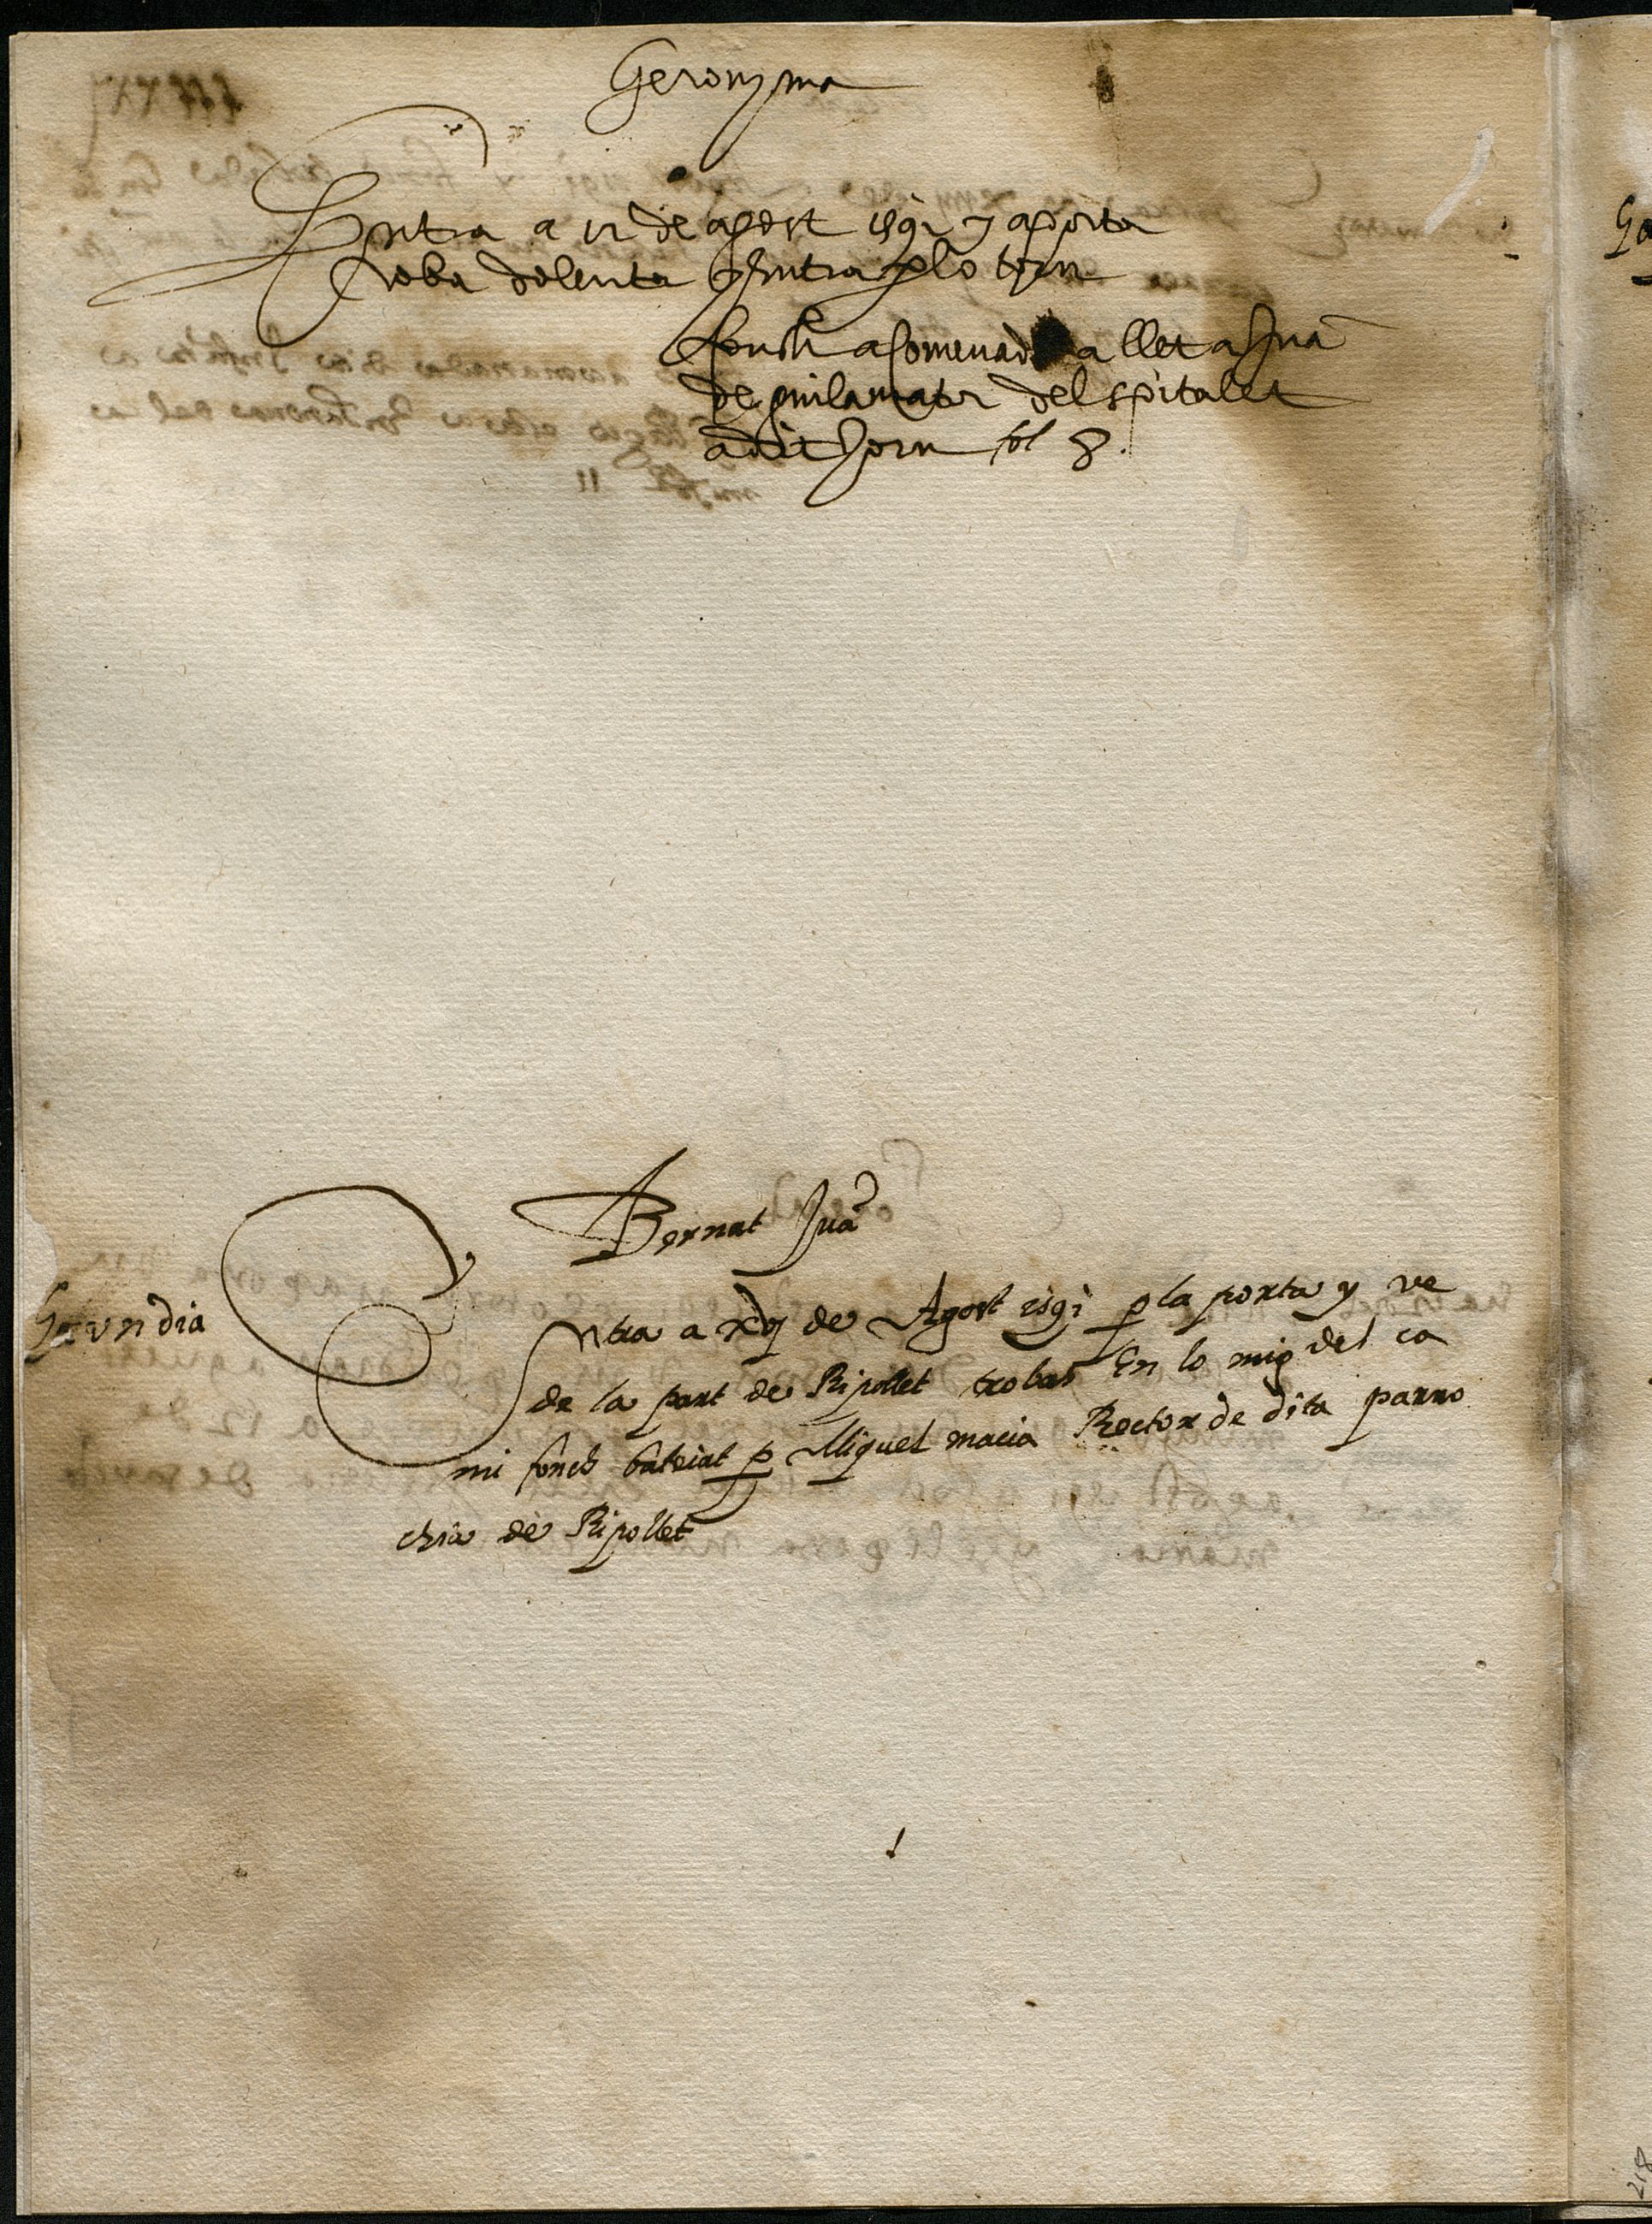 Geronyma
Entra a 12 de agost 1591 y aporta
roba dolenta y entra p lo torn
fonch acomenad a llet a Jua
de puilamatr del spitalet
a dit Jorn fol 8.
Bernat Juā
Gaundia
Entra a xvj de Agost 1591 p la porta y ve
de la part de Ripollet trobat En lo mig del ca
mi fonch bateiat p Miquel macia Rector de dita parro
chia de Ripollet